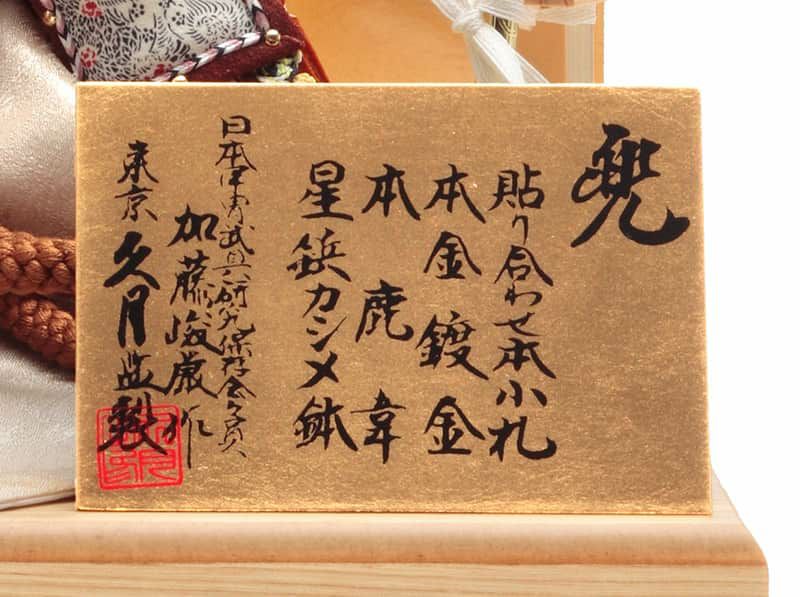 兜
貼り合わせ本小札
本金鍍金
本鹿韋
星鋲カシメ鉢
日本甲冑武具研究保存会会員
加藤峻厳作
東京久月監製